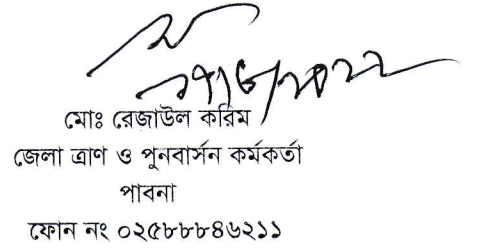 মোঃ রেজাউল করিম
জেলা ত্রাণ ও পুনবার্সন কর্মকর্তা
পাবনা
ফোন নং ০২৫৮৮৮৪৬২১১